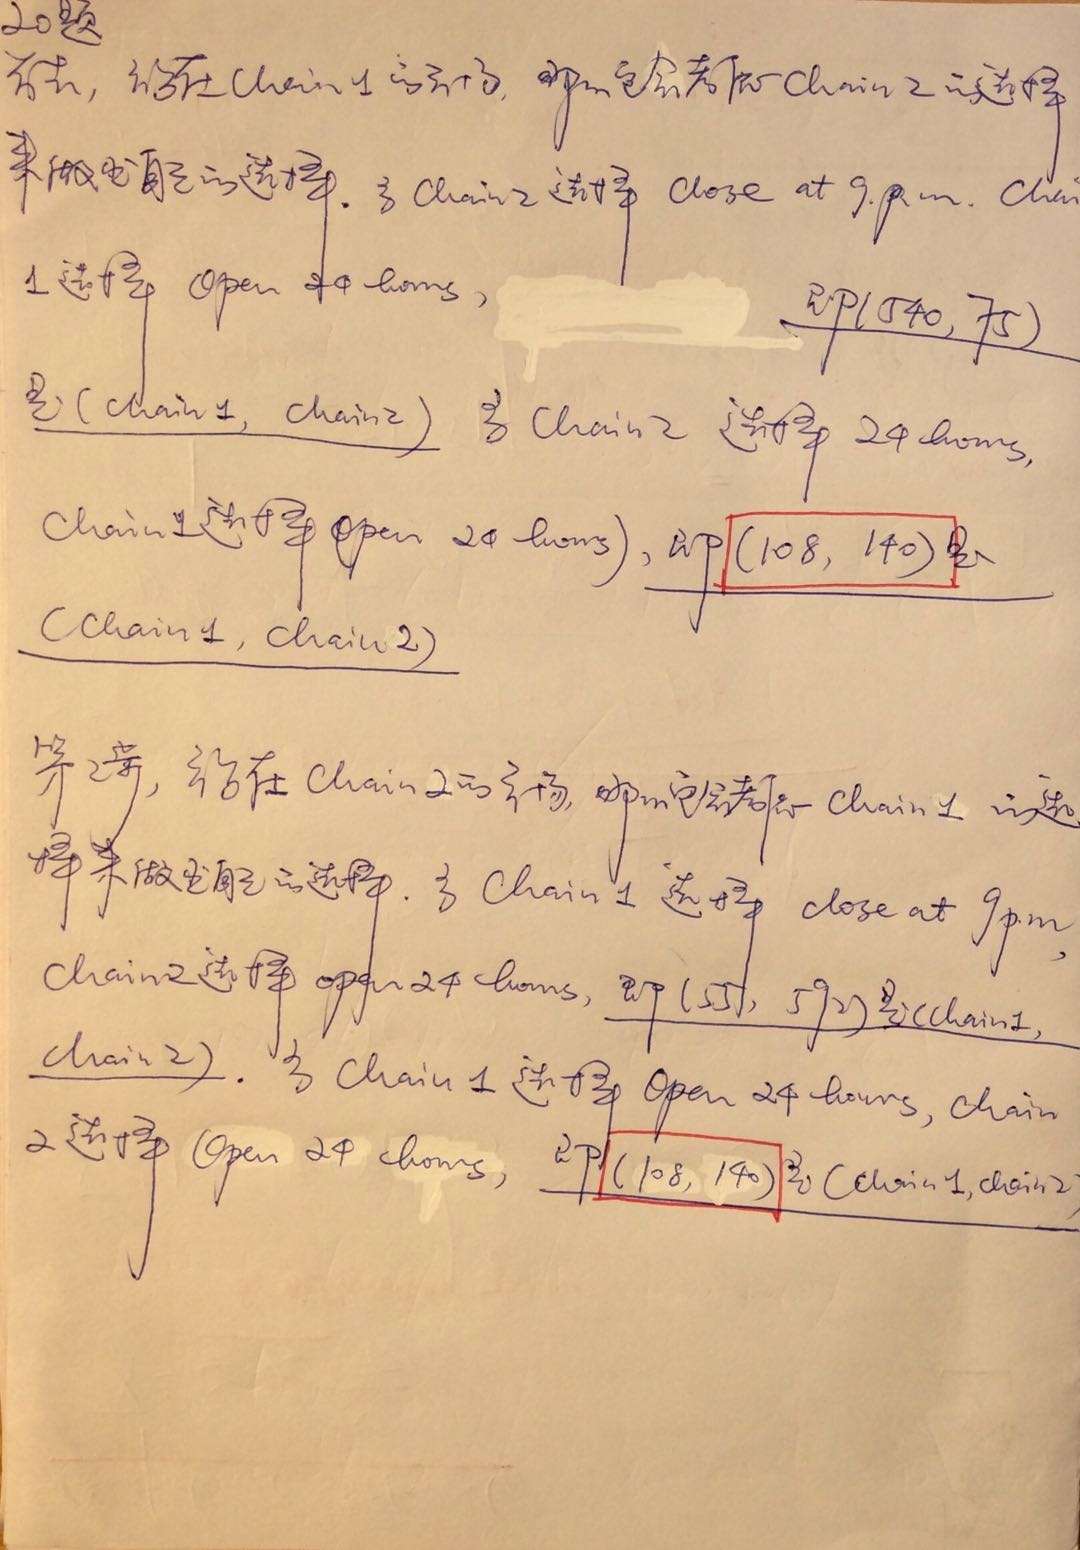 20题
首先, 站在Chain1的立场, 那么它会考虑Chain2的选择
来做出自己的选择. 当Chain2选择 close at 9.p.m. Chai
1选择 Open 24 hours,
即(540, 75)
是(Chain1, Chain2) 当Chain2 选择 24 hours,
Chain1选择 Open 24 hours), 即(108, 140)是
(Chain1, Chain2)
第2步, 站在Chain2的立场, 那么它会考虑Chain1的选
择来做出自己的选择. 当Chain1选择 close at 9pm,
Chain2选择 open 24 hours, 即(55, 592)是(Chain1,
Chain2). 当Chain1选择 Open 24 hours, Chain
2选择 Open 24 hours, 即(108, 140)是(Chain1, Chain2)